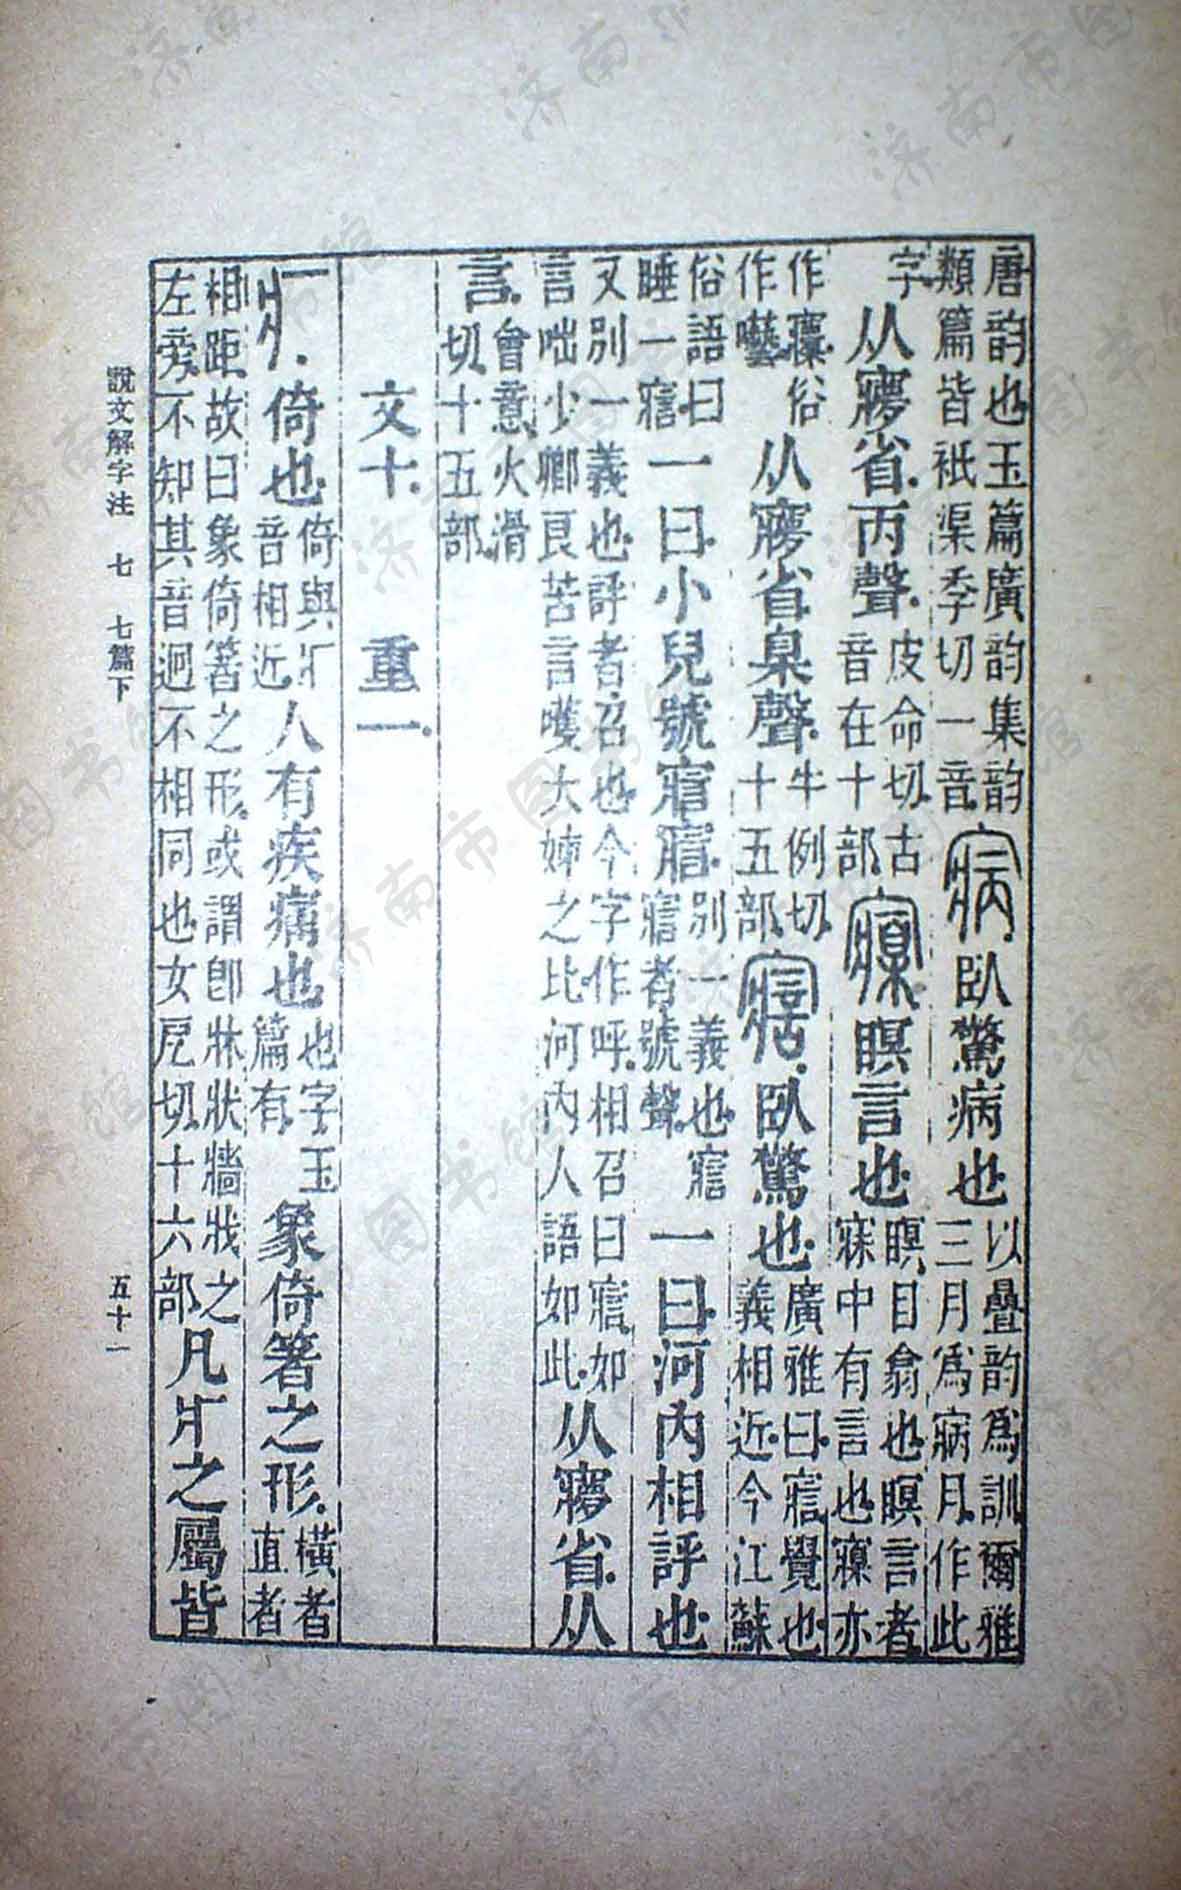 唐韵也玉篇廣韵集韵
類篇皆衹渠季切一音
㝱臥驚病也
以疊韵爲訓爾雅
三月爲寎月作此
字
从㝱省丙聲
皮命切古
音在十部
瞑言也
瞑目翕也瞑言者
寐中有言也寱亦
作㝥俗
作囈
从㝱省臬聲
牛例切
十五部
臥驚也
廣雅曰㾛覺也
義相近今江蘇
俗語曰
睡一㾛
一曰小兒號㾛㾛
別一義也㾛
㾛者號聲
一曰河內相評也
又別一義也評者召也今字作呼相召曰㾛如
言咄少卿良苦言嚄大姊之比河內人語如此
从㝱省从
言
會意火滑
切十五部
文十 重一
疒倚也
倚與疒
音相近
人有疾痛也
也字玉
篇有
象倚箸之形
橫者
直者
相距故曰象倚箸之形或謂卽牀狀牆戕之
左㫄不知其音迥不相同也女戹切十六部
凡疒之屬皆
說文解字注 七 七篇下 五十一
济南市图书馆